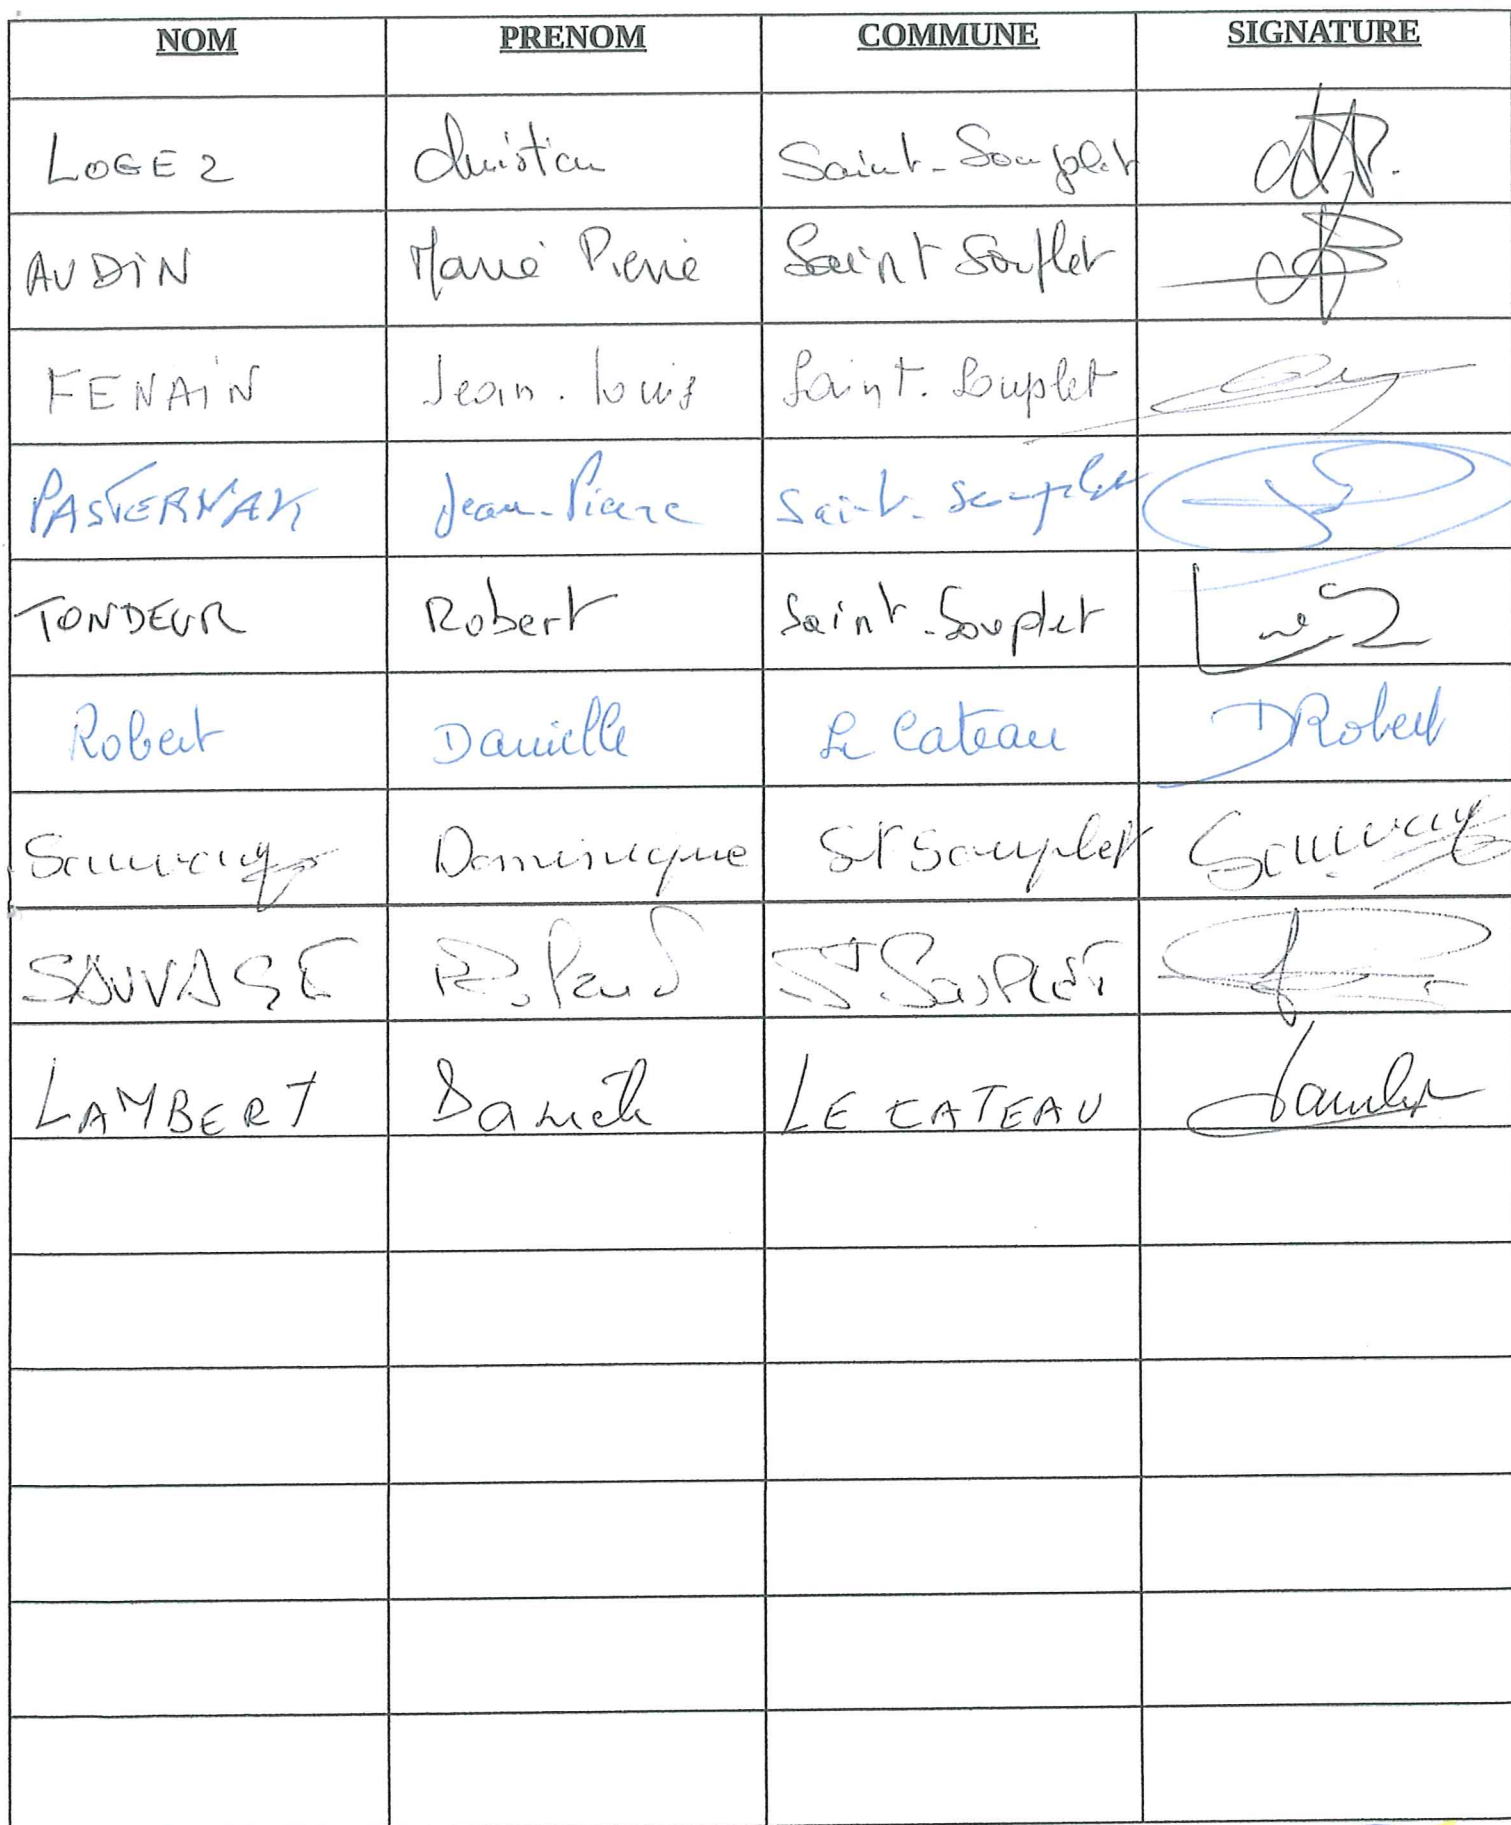 NOM PRENOM COMMUNE SIGNATURE
LOGEZ Christian Saint-Souplet
AUDIN Marie Pierre Saint Souplet
FENAIN Jean-Louis Saint-Souplet
PASTERNAK Jean-Pierre Saint-Souplet
TONDEUR Robert Saint-Souplet
Robert Danielle Le Cateau DRobert
Sauvage Dominique St Souplet Sauvage
SAUVAGE St SOUPLET
LAMBERT LE CATEAU Lambert